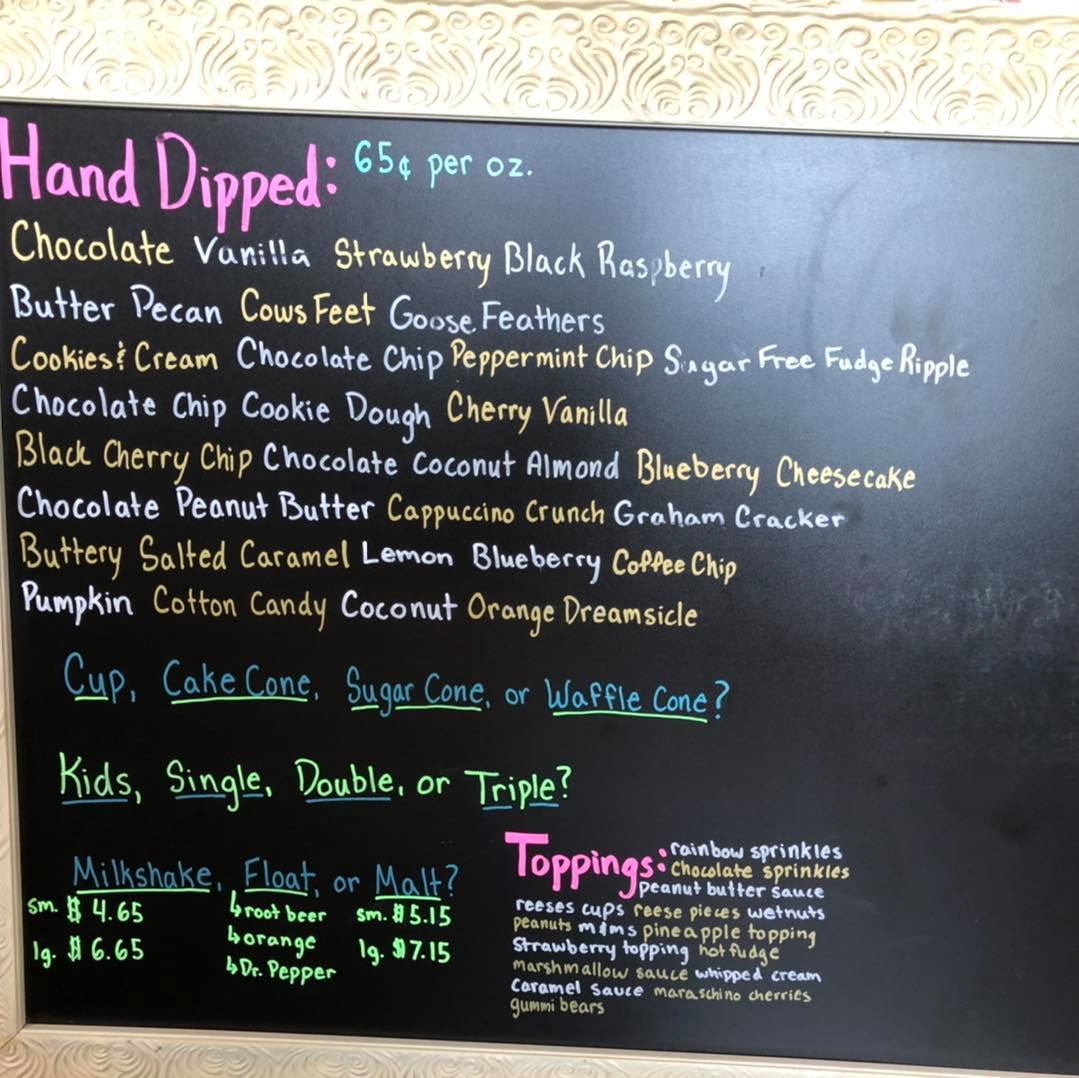 Hand Dipped: 65¢ per oz.
Chocolate Vanilla Strawberry Black Raspberry
Butter Pecan Cows Feet Goose Feathers
Cookies & Cream Chocolate Chip Peppermint Chip Sugar Free Fudge Ripple
Chocolate Chip Cookie Dough Cherry Vanilla
Black Cherry Chip Chocolate Coconut Almond Blueberry Cheesecake
Chocolate Peanut Butter Cappuccino Crunch Graham Cracker
Buttery Salted Caramel Lemon Blueberry Coffee Chip
Pumpkin Cotton Candy Coconut Orange Dreamsicle
Cup, Cake Cone, Sugar Cone, or Waffle Cone?
Kids, Single, Double, or Triple?
Milkshake, Float, or Malt?
sm. $ 4.65 ↳root beer sm. $5.15
lg. $ 6.65 ↳orange lg. $7.15
↳Dr. Pepper
Toppings: rainbow sprinkles
Chocolate sprinkles
peanut butter sauce
reeses cups reese pieces wetnuts
peanuts m&ms pineapple topping
Strawberry topping hot fudge
marshmallow sauce whipped cream
Caramel sauce maraschino cherries
gummi bears